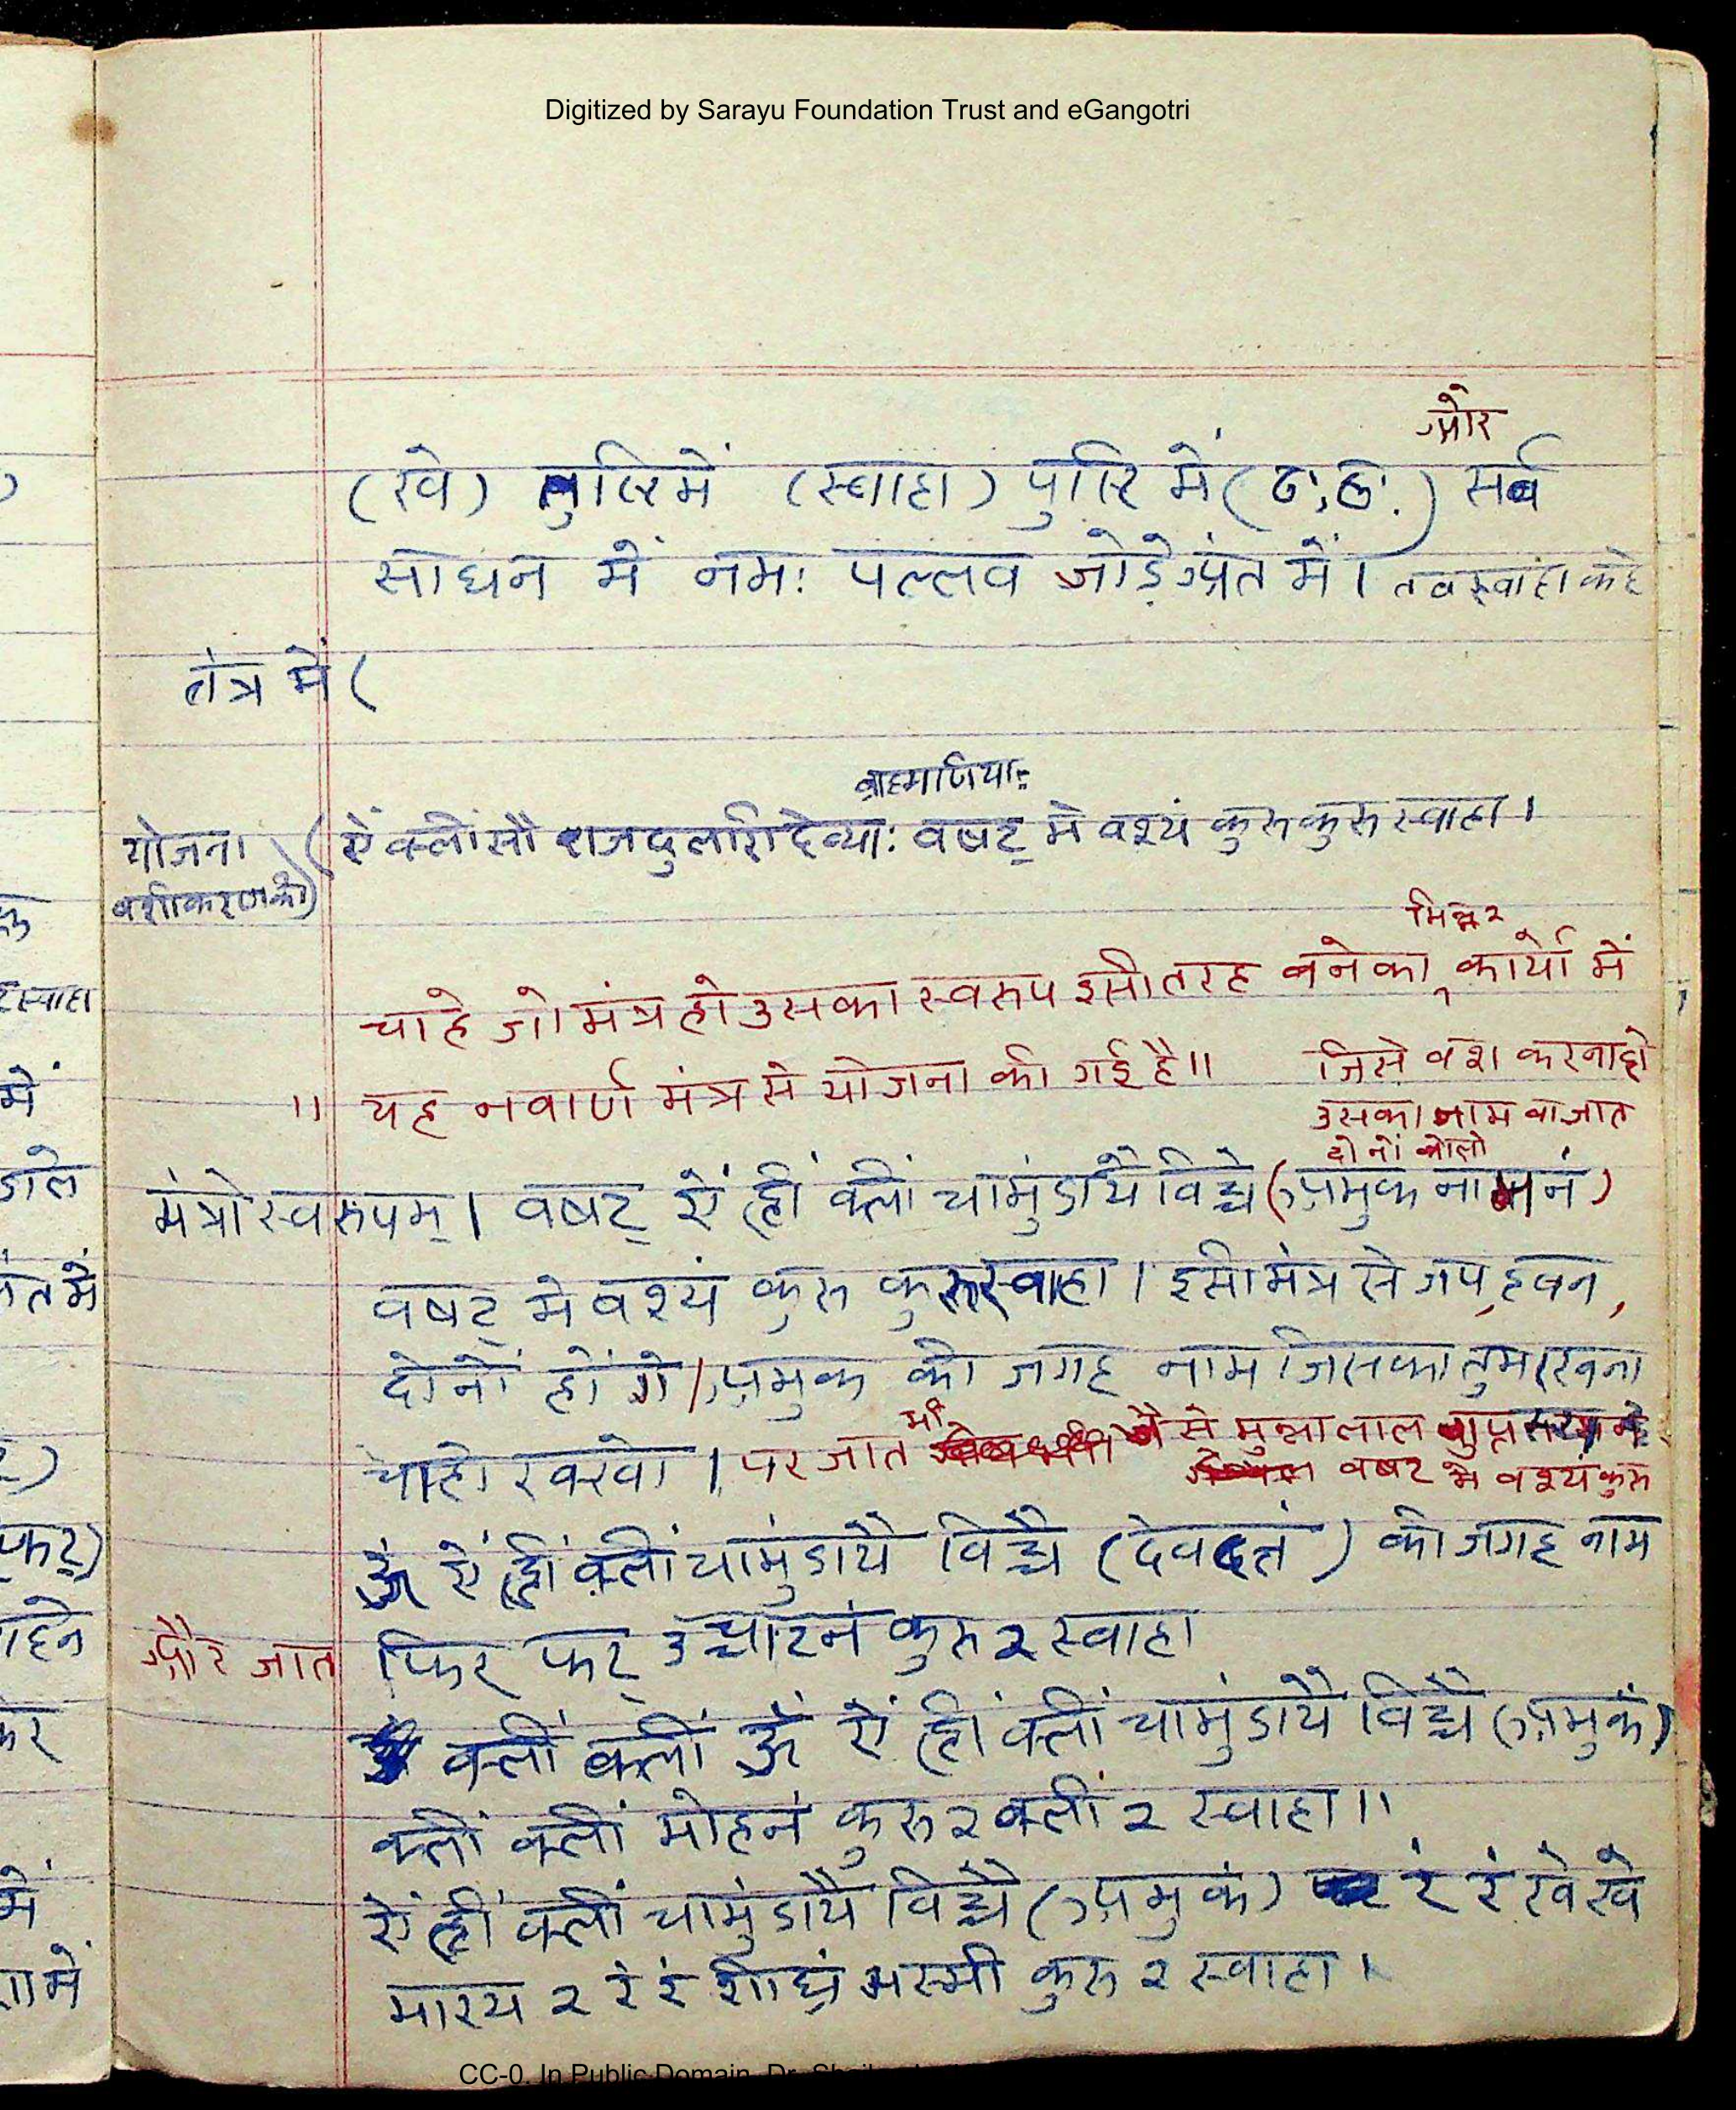 Digitized by Sarayu Foundation Trust and eGangotri
और
(खे) तुष्टि में (स्वाहा) पुष्टि में (ठः, ठः) सर्व
साधन में नमः पल्लव जोड़े अंत में। तब स्वाहा कहे
तंत्र में (
ब्राह्मणियाः
योजना (ऐं क्लीं सौ राजदुलारी देव्याः वषट् मे वश्यं कुरु कुरु स्वाहा।
वशीकरण की)
भिन्न २
चाहे जो मंत्र हो उसका स्वरूप इसी तरह बनेका, कार्यो में
॥ यह नवार्ण मंत्र से योजना की गई है॥ जिसे वश करना हो
उसका नाम वा जात
दोनों बोलो
मंत्रो स्वरूपम्। वषट् ऐं ह्रीं क्लीं चामुंडायै विच्चे (अमुक नामनं)
वषट् मे वश्यं कुरु कुरु स्वाहा। इसी मंत्र से जप, हवन,
दोनों हों गे। अमुक की जगह नाम जिसका तुम रखना
चाहो रक्खो। पर जात भी जैसे मुन्नालाल गुप्त
वषट मे वश्यं कुरु
ॐ ऐं ह्रीं क्लीं चामुंडायै विच्चै (देवदत्तं) की जगह नाम
और जात फिर फट् उच्चाटनं कुरु २ स्वाहा
क्लीं क्लीं ॐ ऐं ह्रीं क्लीं चामुंडायै विच्चै (अमुकं)
क्लीं क्लीं मोहनं कुरु २ क्लीं २ स्वाहा॥
ऐं ह्रीं क्लीं चामुंडायै विच्चै (अमुकं) रं रं खे खे
मारय २ रं रं शीघ्रं भस्मी कुरु २ स्वाहा।
CC-0. In Public Domain.